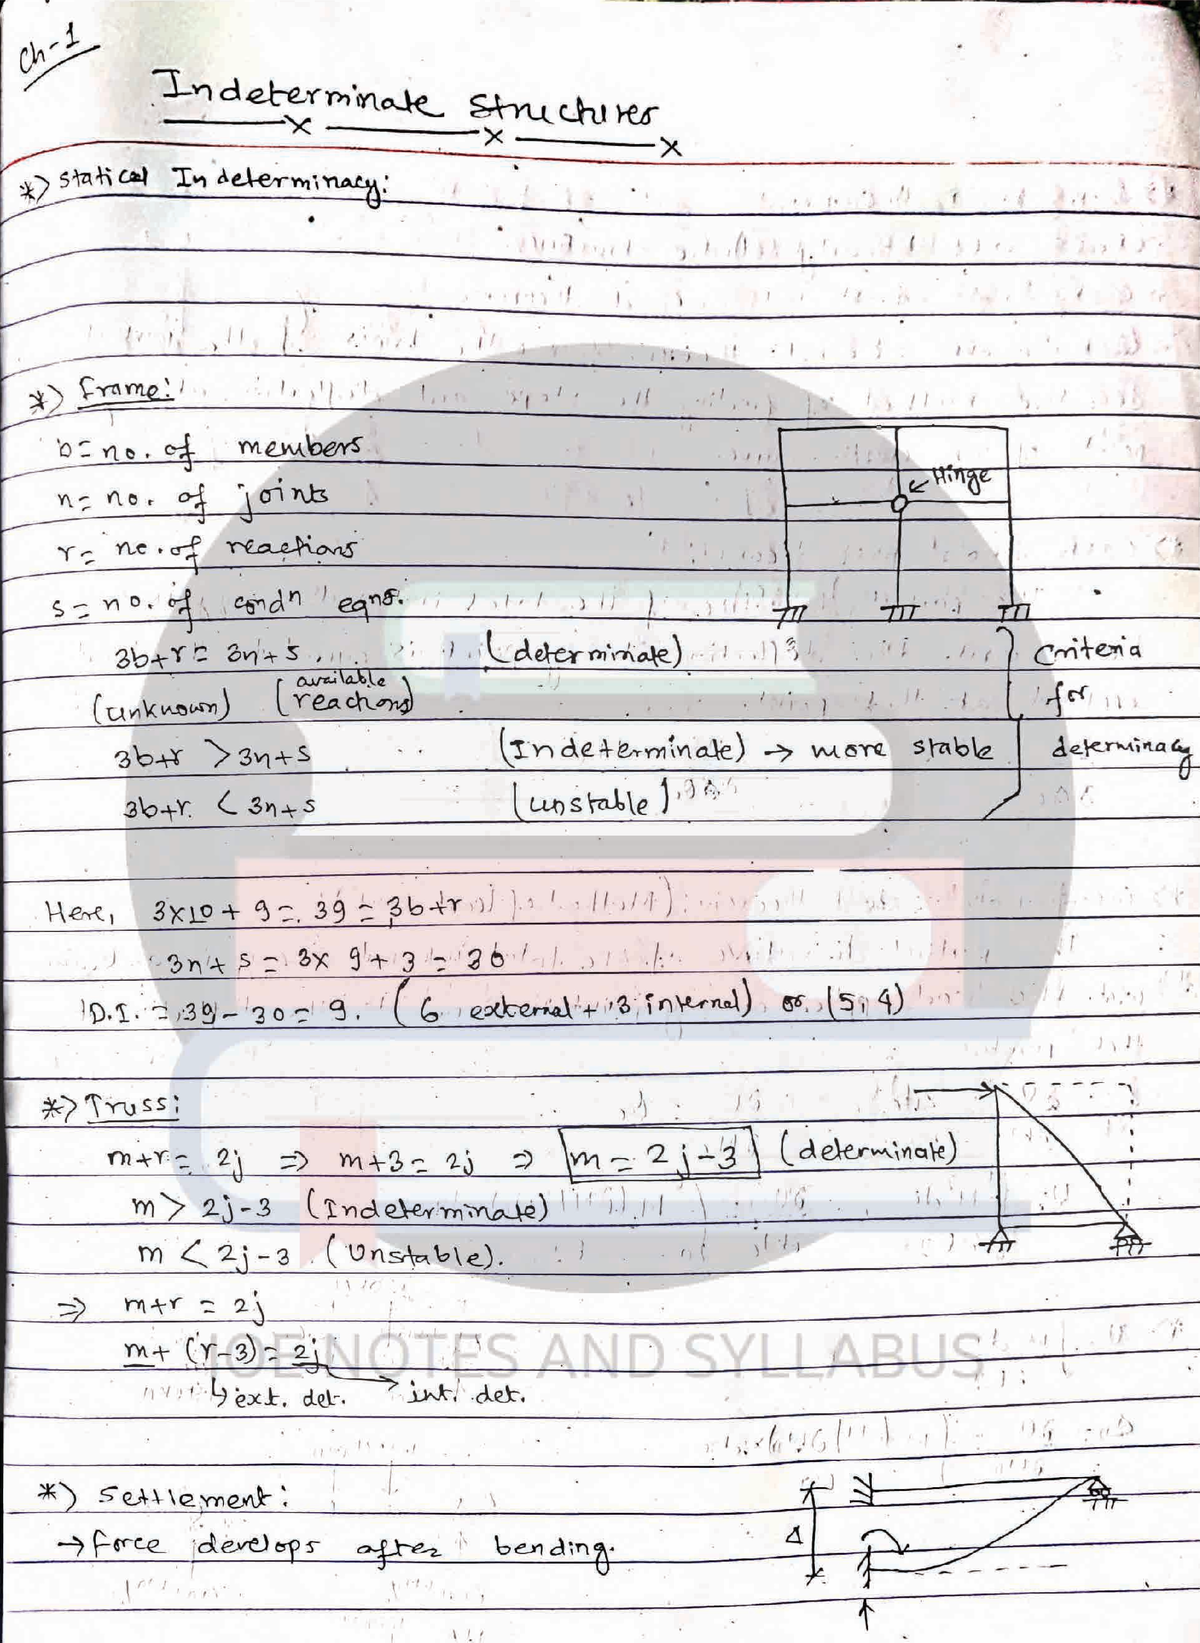 Ch-1
Indeterminate Structures
*) Statical Indeterminacy:
*) Frame:
b = no. of members
n = no. of joints
Hinge
r = no. of reactions
s = no. of condn eqns.
3b+r = 3n+s (determinate) Criteria
(unknown) (available reactions) for
3b+r > 3n+s (Indeterminate) → more stable determinacy
3b+r < 3n+s (unstable)
Here, 3x10 + 9 = 39 = 3b+r
3n+s = 3x 9+3 = 30
D.I. = 39-30 = 9. (6 external + 3 internal) or (5,4)
*) Truss:
m+r = 2j ⇒ m+3 = 2j ⇒ m = 2j-3 (determinate)
m > 2j-3 (Indeterminate)
m < 2j-3 (Unstable).
⇒ m+r = 2j
m+ (r-3) = 2j
IOE NOTES AND SYLLABUS
↳ ext. det. → int. det.
*) Settlement:
→ force develops after bending.
Δ